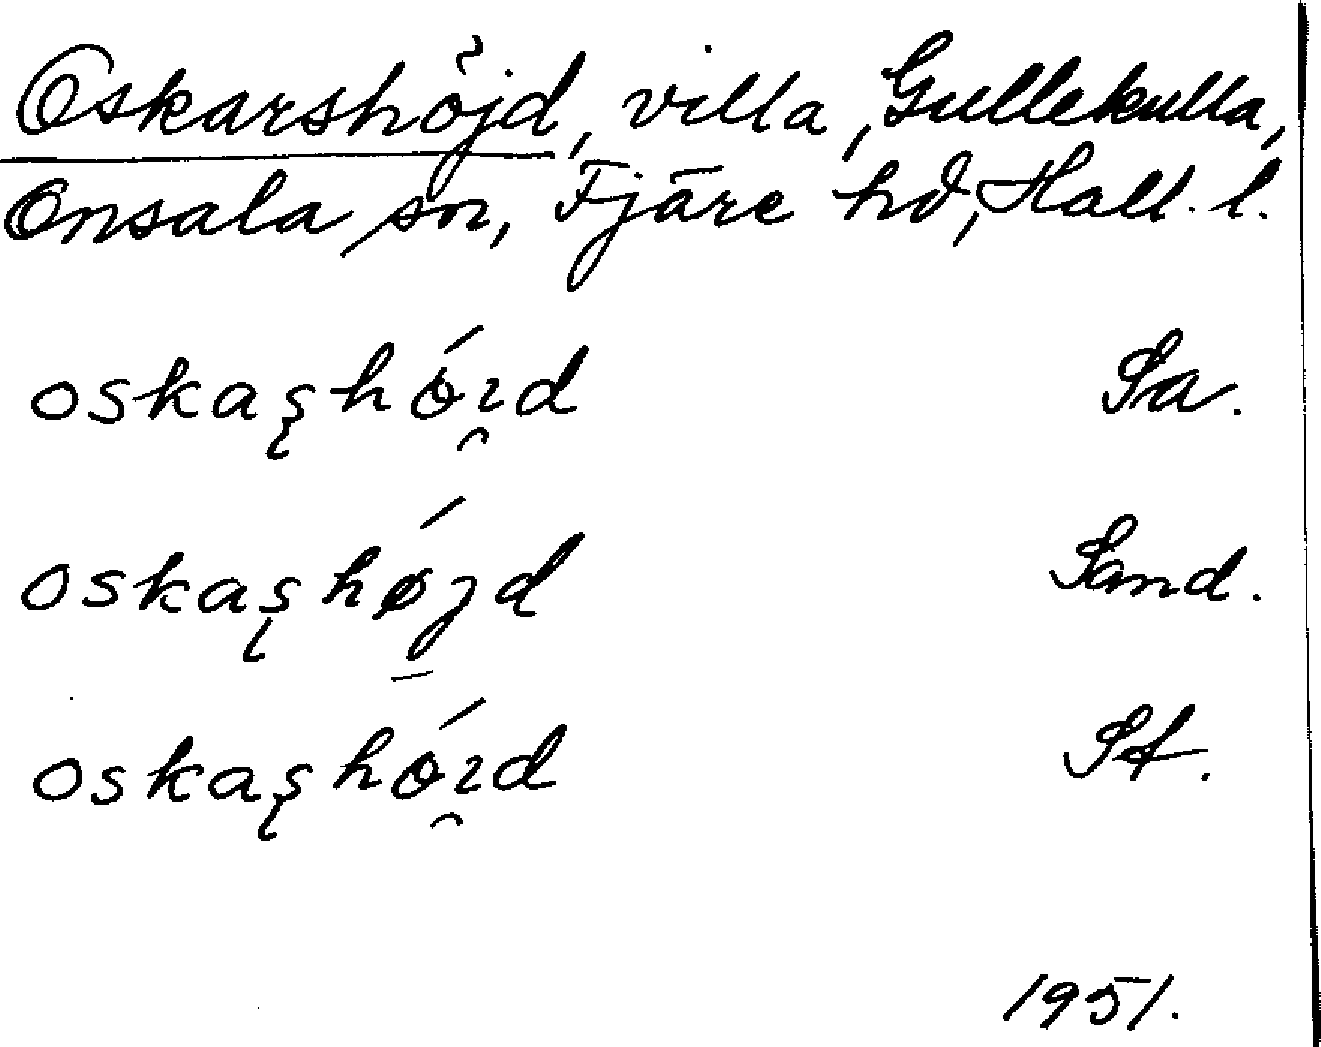 Oskarshöjd, villa, Gullekulla,
Onsala sn, Fjäre hd, Hall. l.
oskaʂhǿı̯d Sa.
oskaʂhǿȷd Sand.
oskaʂhǿı̯d St.
1951.